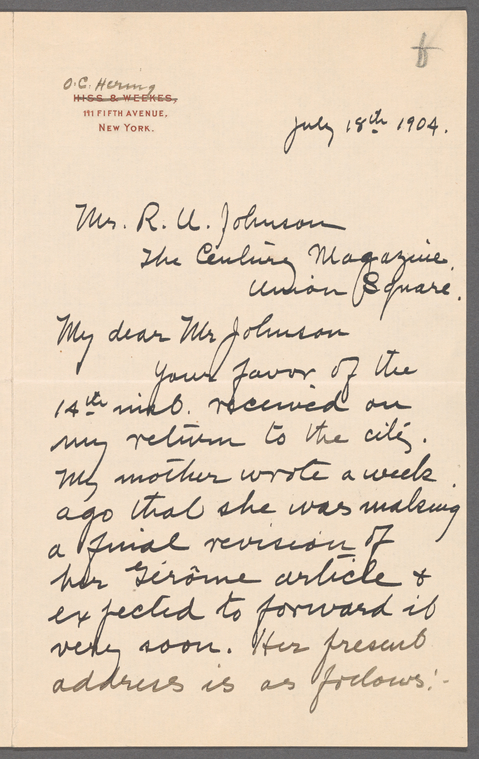 f
O. C. Hering
HISS & WEEKES,
111 FIFTH AVENUE,
NEW YORK.
July 18th 1904.
Mr. R. U. Johnson
The Century Magazine.
Union Square.
My dear Mr Johnson
Your favor of the
14th inst. received on
my return to the city.
My mother wrote a week
ago that she was making
a final revision of
her Gérôme article &
expected to forward it
very soon. Her present
address is as follows:-